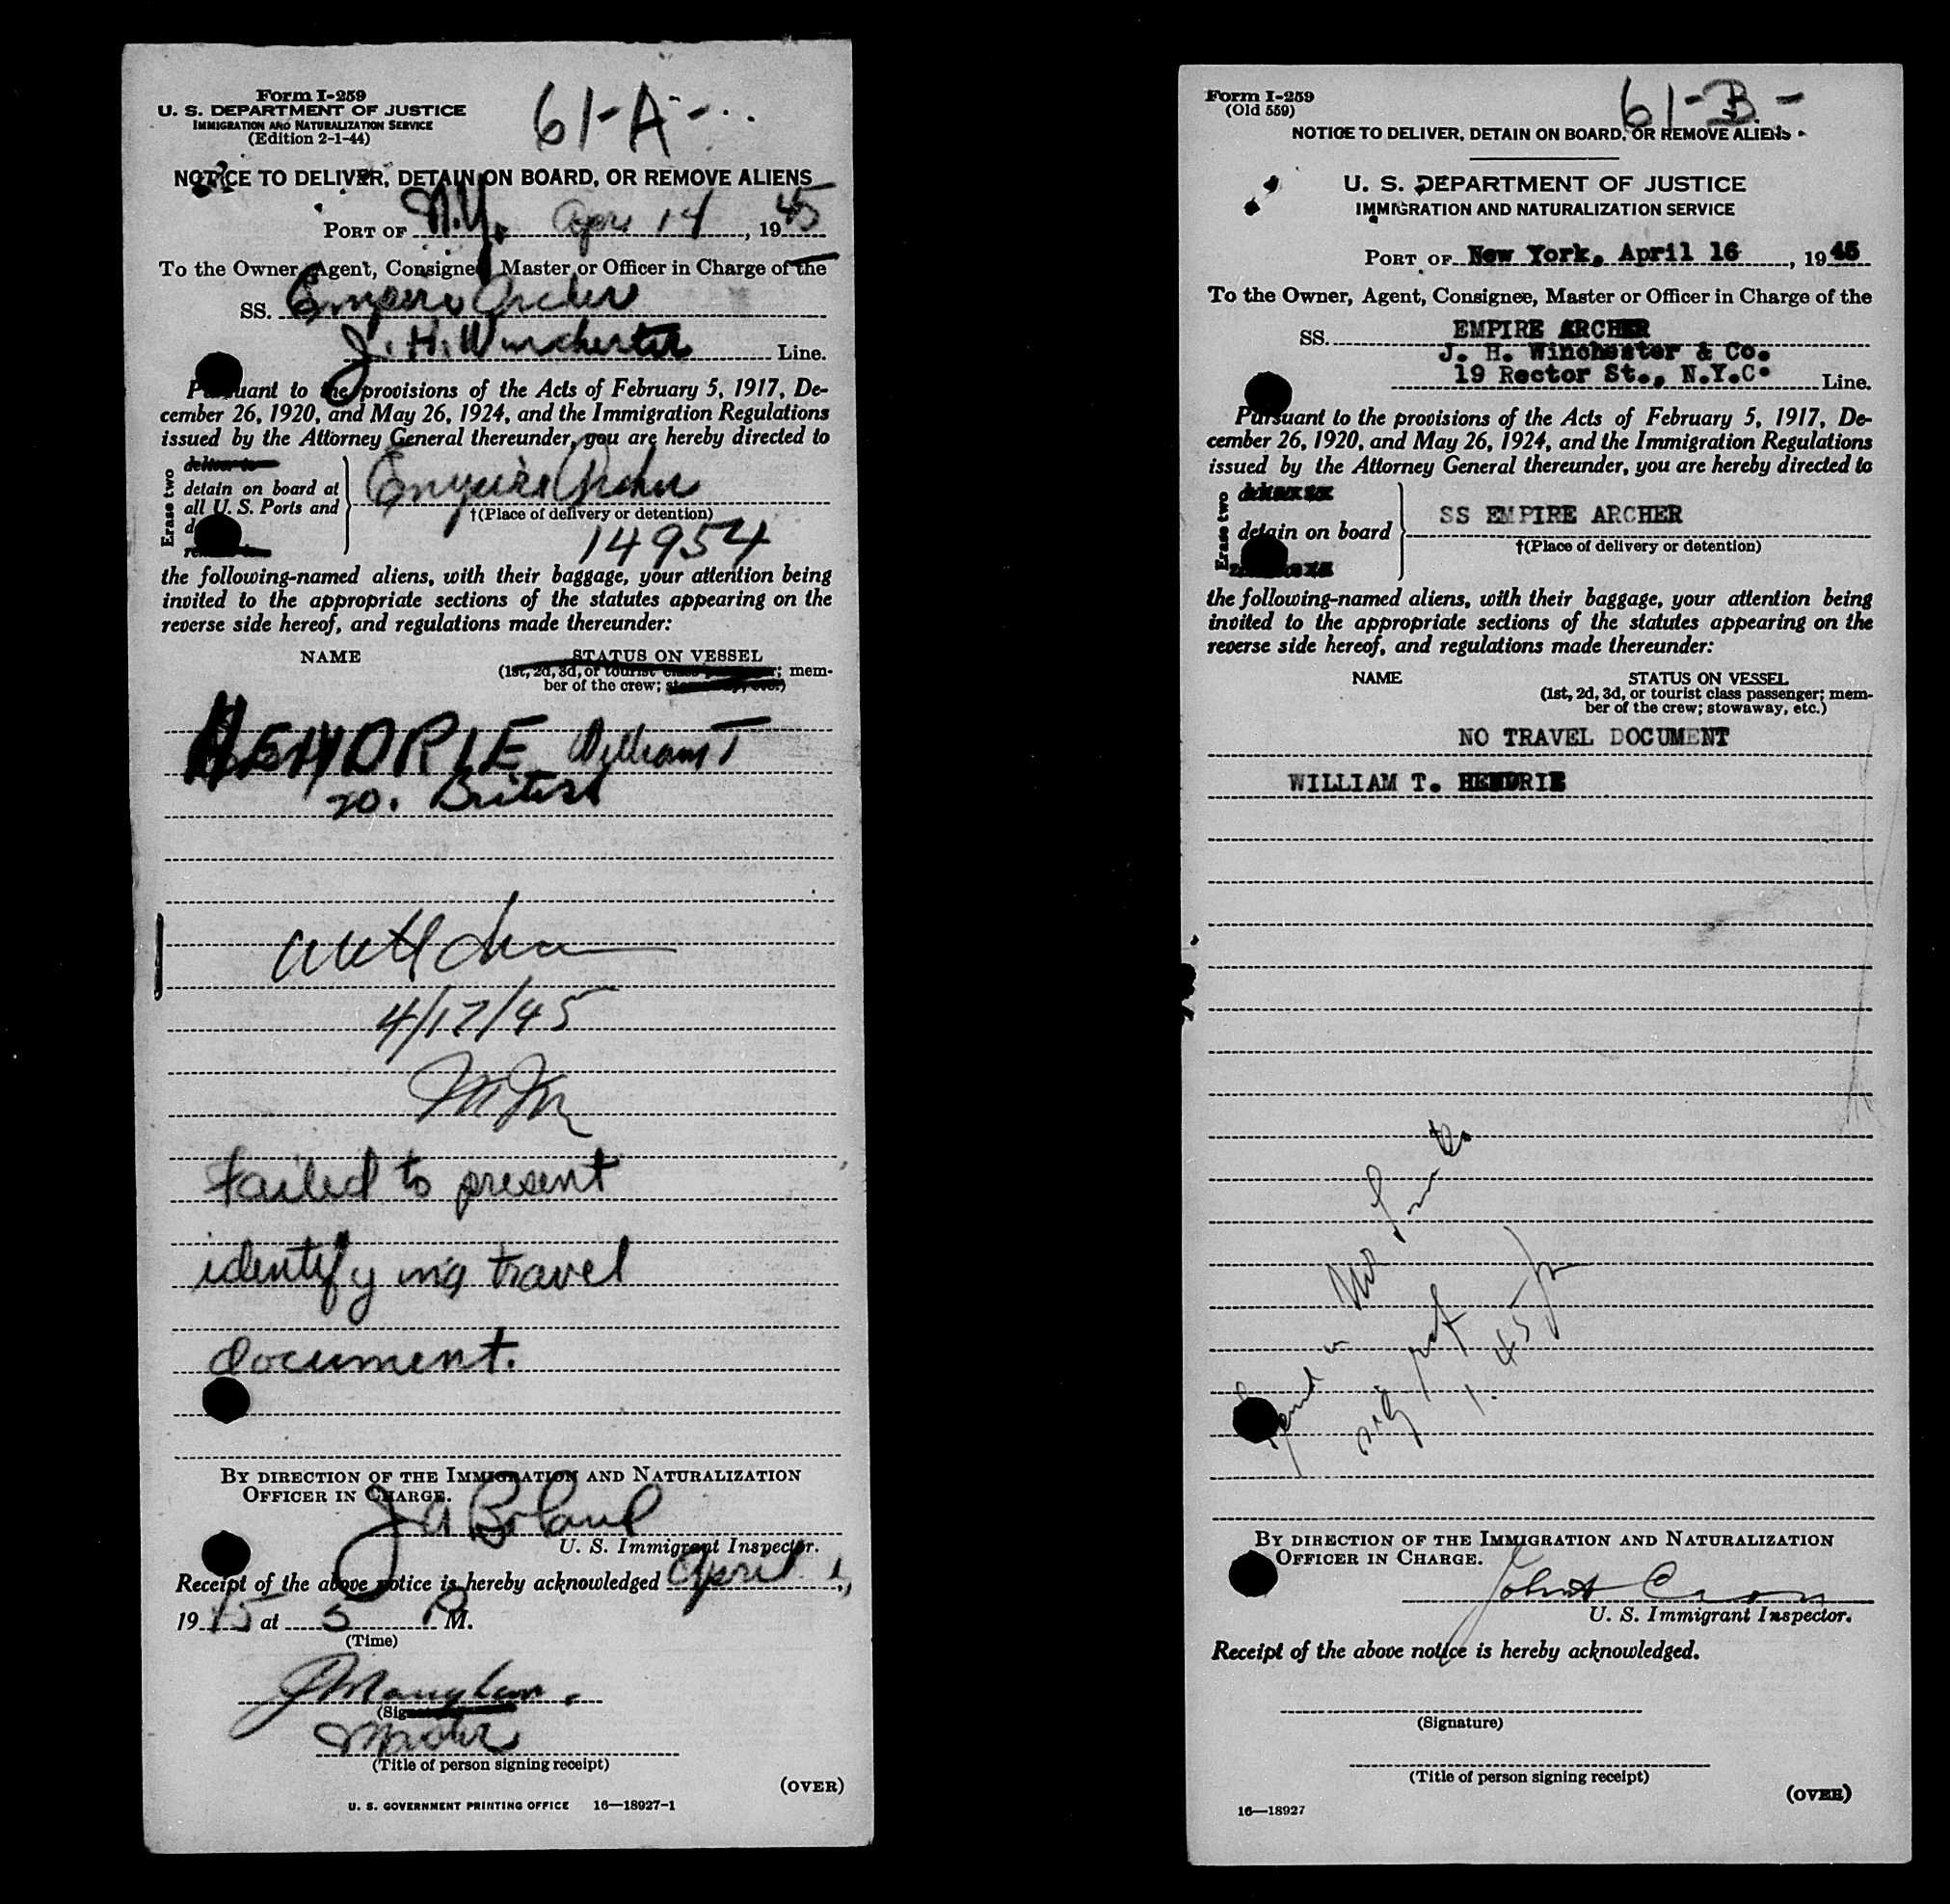 Form I-259
U. S. DEPARTMENT OF JUSTICE
IMMIGRATION AND NATURALIZATION SERVICE
(Edition 2-1-44)
61-A-
NOTICE TO DELIVER, DETAIN ON BOARD, OR REMOVE ALIENS
PORT OF N.Y. Apr 14, 1945
To the Owner, Agent, Consignee, Master or Officer in Charge of the
SS. Empire Archer
J. H. Winchester Line.
Pursuant to the provisions of the Acts of February 5, 1917, De-
cember 26, 1920, and May 26, 1924, and the Immigration Regulations
issued by the Attorney General thereunder, you are hereby directed to
Erase two
deliver to
detain on board at
all U. S. Ports and
Empire Archer
†(Place of delivery or detention)
14954
the following-named aliens, with their baggage, your attention being
invited to the appropriate sections of the statutes appearing on the
reverse side hereof, and regulations made thereunder:
NAME
STATUS ON VESSEL
(1st, 2d, 3d, or tourist class passenger; mem-
ber of the crew; stowaway, etc.)
HENDRIE William T
20. British
4/17/45
failed to present
identifying travel
document.
BY DIRECTION OF THE IMMIGRATION AND NATURALIZATION
OFFICER IN CHARGE.
J A Boland
U. S. Immigrant Inspector.
Receipt of the above notice is hereby acknowledged April
1945 at 5 P M.
(Time)
(Signature)
(Title of person signing receipt)
(OVER)
U. S. GOVERNMENT PRINTING OFFICE 16—18927-1
Form I-259
(Old 559)
61-B-
NOTICE TO DELIVER, DETAIN ON BOARD, OR REMOVE ALIENS
U. S. DEPARTMENT OF JUSTICE
IMMIGRATION AND NATURALIZATION SERVICE
PORT OF New York, April 16, 1945
To the Owner, Agent, Consignee, Master or Officer in Charge of the
SS. EMPIRE ARCHER
J. H. Winchester & Co.
19 Rector St., N.Y.C. Line.
Pursuant to the provisions of the Acts of February 5, 1917, De-
cember 26, 1920, and May 26, 1924, and the Immigration Regulations
issued by the Attorney General thereunder, you are hereby directed to
Erase two
detain on board
SS EMPIRE ARCHER
†(Place of delivery or detention)
the following-named aliens, with their baggage, your attention being
invited to the appropriate sections of the statutes appearing on the
reverse side hereof, and regulations made thereunder:
NAME
STATUS ON VESSEL
(1st, 2d, 3d, or tourist class passenger; mem-
ber of the crew; stowaway, etc.)
NO TRAVEL DOCUMENT
WILLIAM T. HENDRIE
BY DIRECTION OF THE IMMIGRATION AND NATURALIZATION
OFFICER IN CHARGE.
U. S. Immigrant Inspector.
Receipt of the above notice is hereby acknowledged.
(Signature)
(Title of person signing receipt)
(OVER)
16—18927